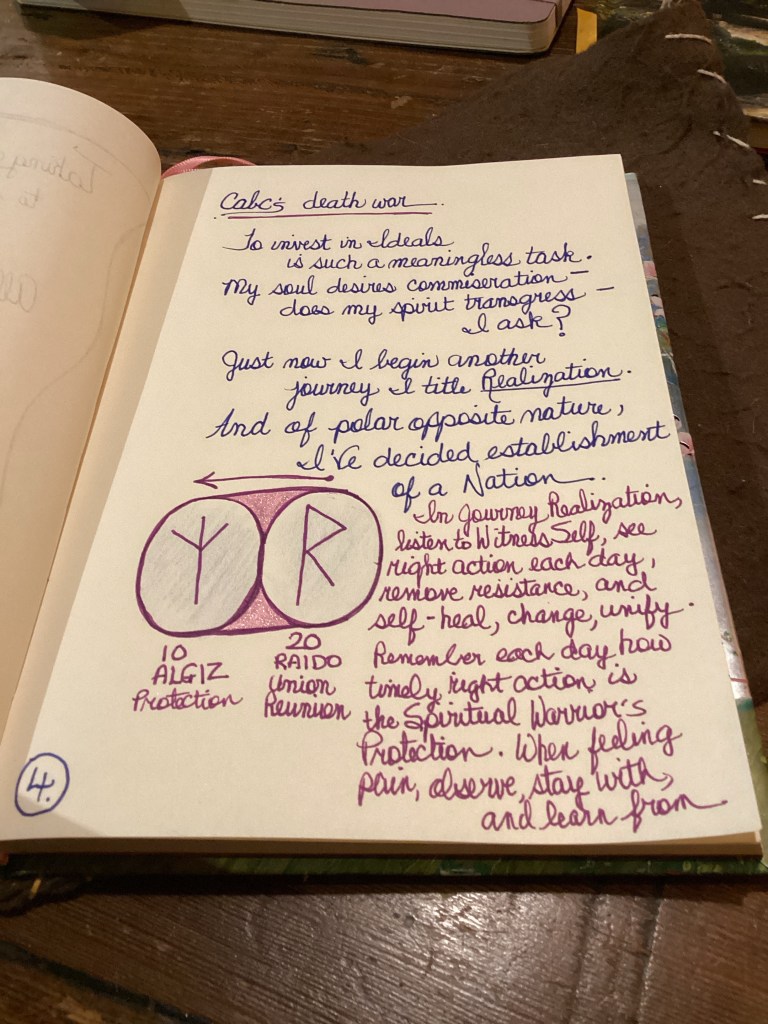 Cabc's death war.
To invest in Ideals
is such a meaningless task.
My soul desires commiseration –
does my spirit transgress –
I ask?
Just now I begin another
journey I title Realization.
And of polar opposite nature,
I've decided establishment
of a Nation.
In Journey Realization,
listen to Witness Self, see
right action each day,
remove resistance, and
self-heal, change, unify.
Remember each day how
timely right action is
the Spiritual Warrior's
Protection. When feeling
pain, observe, stay with,
and learn from.
ᛉ ᚱ
10
ALGIZ
Protection
20
RAIDO
Union
Reunion
4.
Taking
to